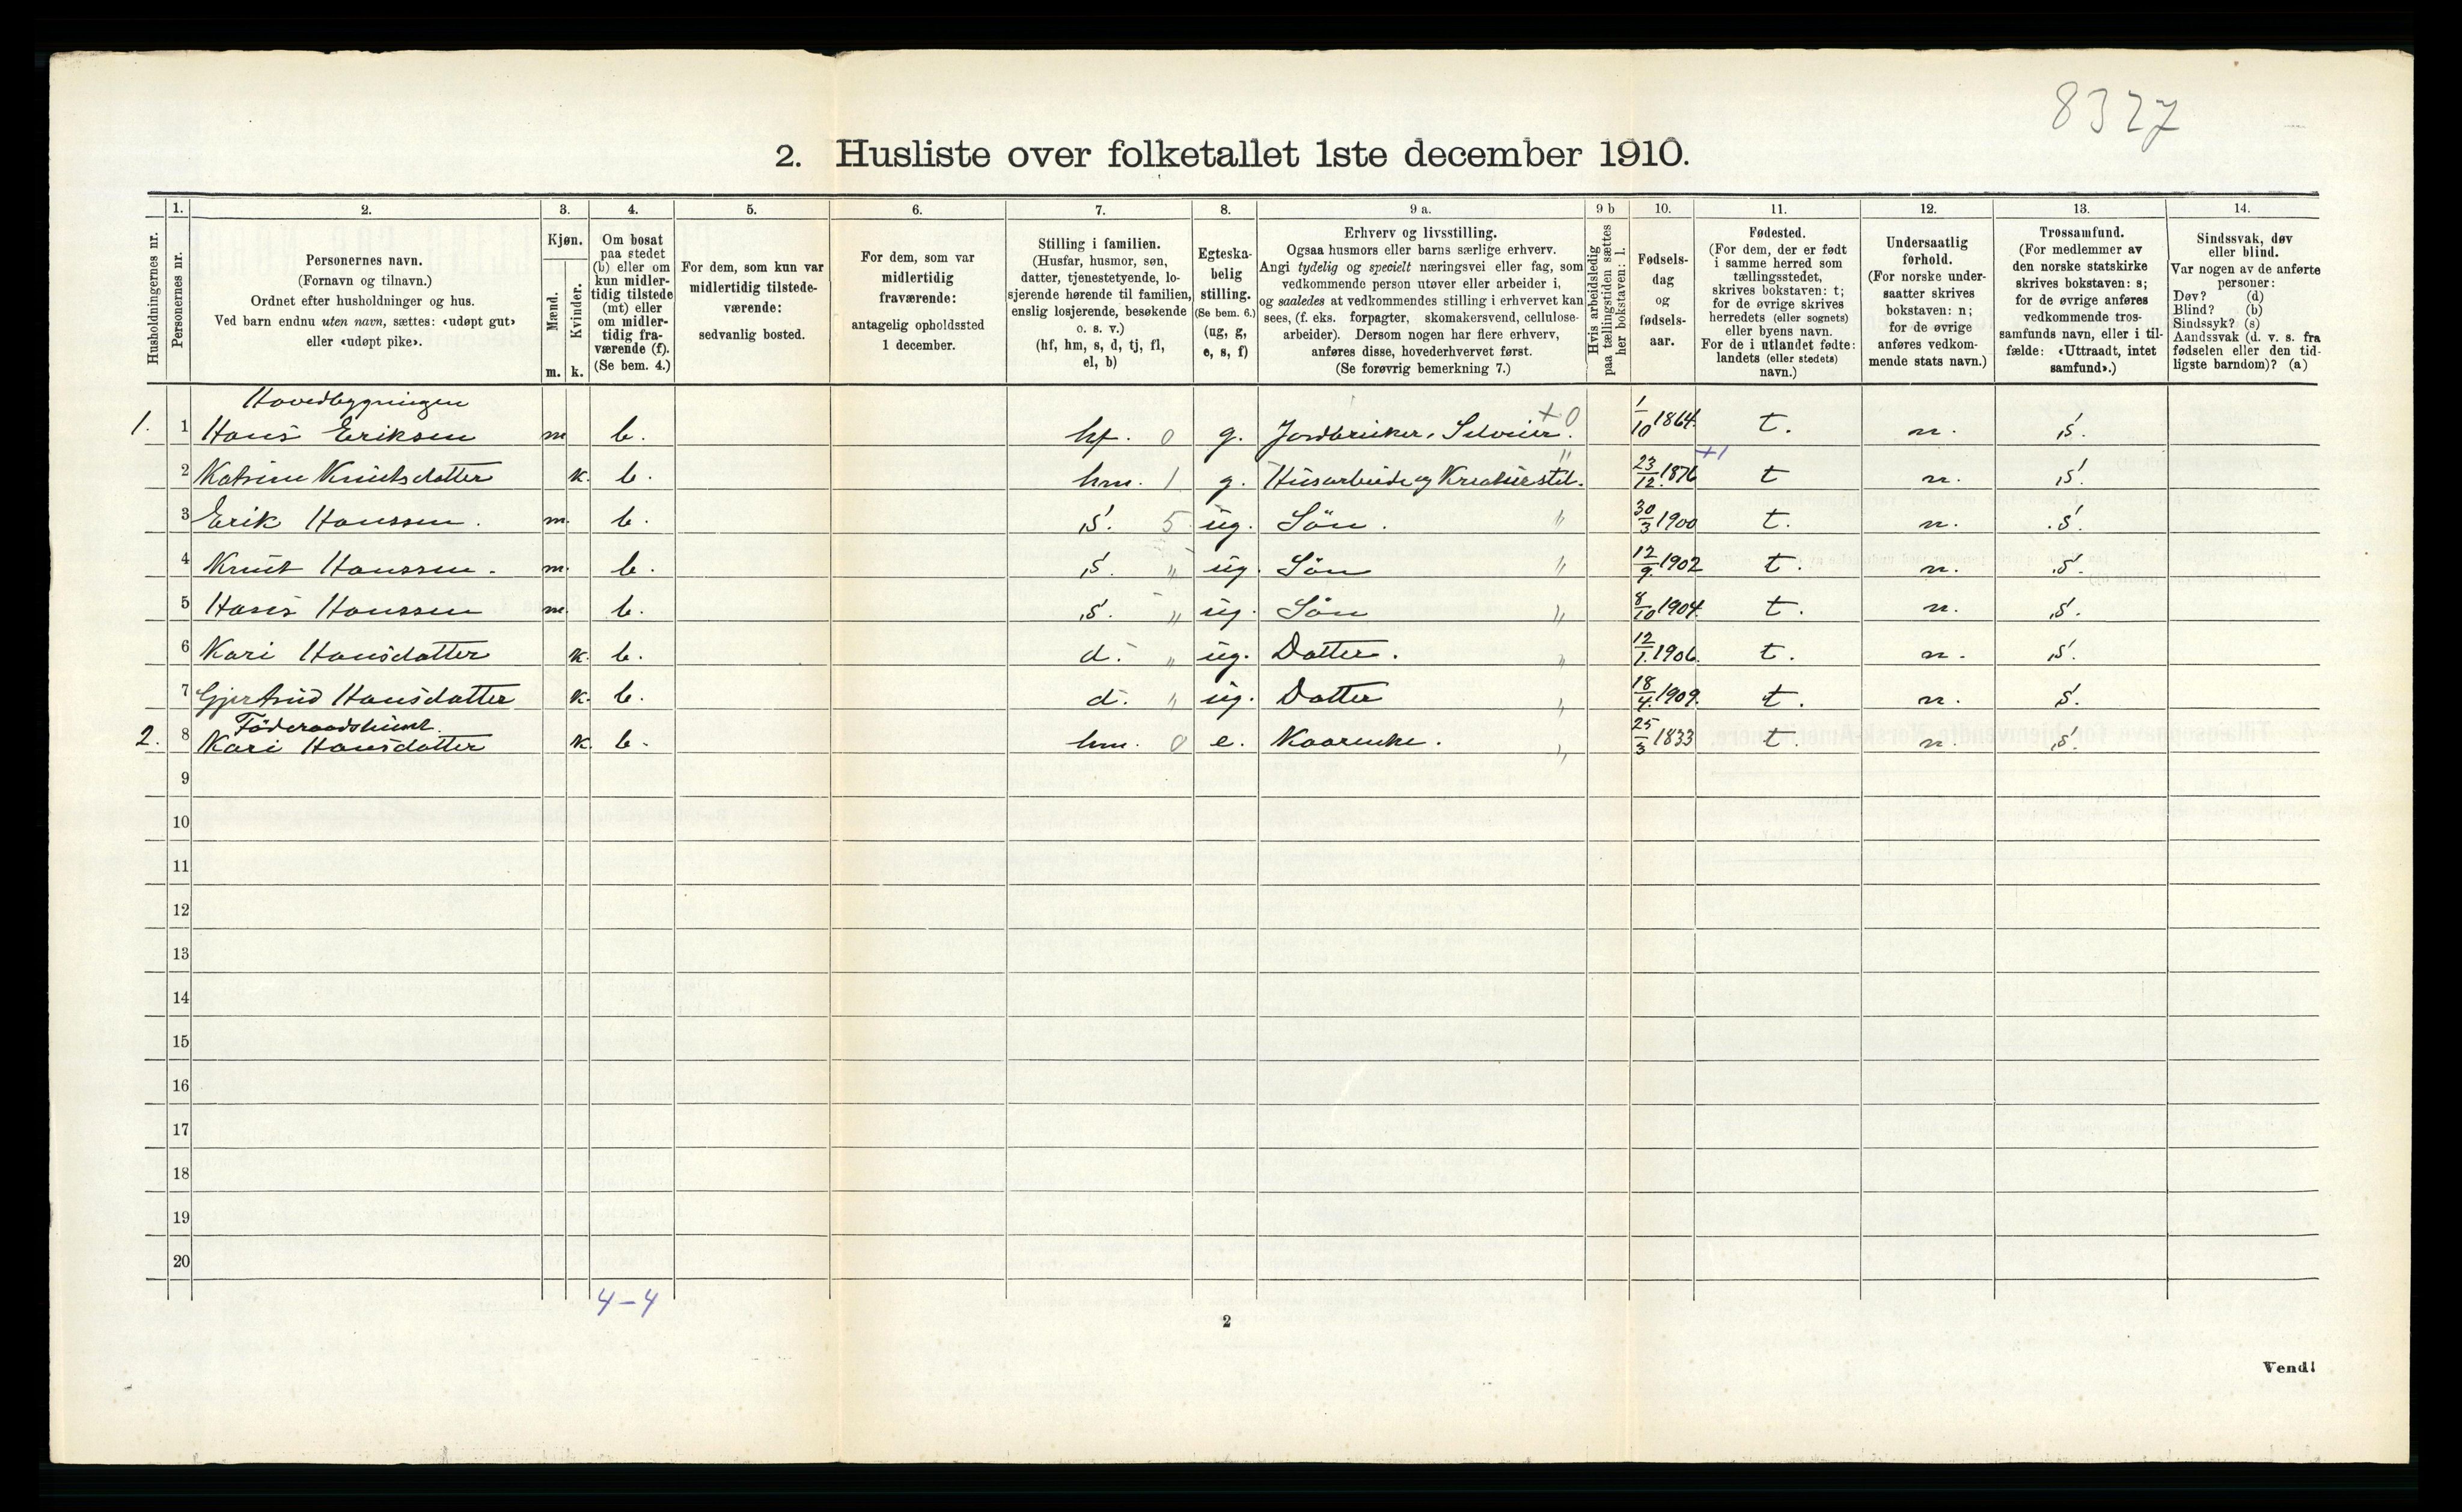 8327
2. Husliste over folketallet 1ste december 1910.
Husholdningernes nr.
1.
Personernes nr.
2.
Personernes navn.
(Fornavn og tilnavn.)
Ordnet efter husholdninger og hus.
Ved barn endnu uten navn, sættes: «udøpt gut»
eller «udøpt pike».
3.
Kjøn.
Mænd.
Kvinder.
m. k.
4.
Om bosat
paa stedet
(b) eller om
kun midler-
tidig tilstede
(mt) eller
om midler-
tidig fra-
værende (f).
(Se bem. 4.)
5.
For dem, som kun var
midlertidig tilstede-
værende:
sedvanlig bosted.
6.
For dem, som var
midlertidig
fraværende:
antagelig opholdssted
1 december.
7.
Stilling i familien.
(Husfar, husmor, søn,
datter, tjenestetyende, lo-
sjerende hørende til familien,
enslig losjerende, besøkende
o. s. v.)
(hf, hm, s, d, tj, fl,
el, b)
8.
Egteska-
belig
stilling.
(Se bem. 6.)
(ug, g,
e, s, f)
9 a.
Erhverv og livsstilling.
Ogsaa husmors eller barns særlige erhverv.
Angi tydelig og specielt næringsvei eller fag, som
vedkommende person utøver eller arbeider i,
og saaledes at vedkommendes stilling i erhvervet kan
sees, (f. eks. forpagter, skomakersvend, cellulose-
arbeider). Dersom nogen har flere erhverv,
anføres disse, hovederhvervet først.
(Se forøvrig bemerkning 7.)
9 b
Hvis arbeidsledig
paa tællingstiden sættes
her bokstaven: l.
10.
Fødsels-
dag
og
fødsels-
aar.
11.
Fødested.
(For dem, der er født
i samme herred som
tællingsstedet,
skrives bokstaven: t;
for de øvrige skrives
herredets (eller sognets)
eller byens navn.
For de i utlandet fødte:
landets (eller stedets)
navn.)
12.
Undersaatlig
forhold.
(For norske under-
saatter skrives
bokstaven: n;
for de øvrige
anføres vedkom-
mende stats navn.)
13.
Trossamfund.
(For medlemmer av
den norske statskirke
skrives bokstaven: s;
for de øvrige anføres
vedkommende tros-
samfunds navn, eller i til-
fælde: «Uttraadt, intet
samfund».)
14.
Sindssvak, døv
eller blind.
Var nogen av de anførte
personer:
Døv? (d)
Blind? (b)
Sindssyk? (s)
Aandssvak (d. v. s. fra
fødselen eller den tid-
ligste barndom)? (a)
Hovedbygningen
1. 1 Hans Eriksen m b. hf. 0 g. Jordbruker, Selveier. + 0 1/10 1864 t. n. s.
2 Katrine Knutsdatter k. b. hm. 1 g. Husarbeide og Kreaturstel. " 23/12 1876 +1 t n. s.
3 Erik Hanssen. m. b. s. 5 ug. Sön. " 30/3 1900 t. n. s.
4 Knut Hanssen. m. b. s. " ug. Sön " 12/9 1902 t. n. s.
5 Hans Hanssen m. b. s. " ug. Sön " 8/10 1904. t. n. s.
6 Kari Hansdatter k. b. d. " ug. Datter. " 12/1 1906. t. n. s.
7 Gjertrud Hansdatter k. b. d. " ug. Datter " 18/4 1909. t. n. s.
Föderaadshuset.
2. 8 Kari Hansdatter k. b. hm. 0 e. Kaarenke. " 25/3 1833 t. n. s.
9
10
11
12
13
14
15
16
17
18
19
20
4-4
2
Vend!